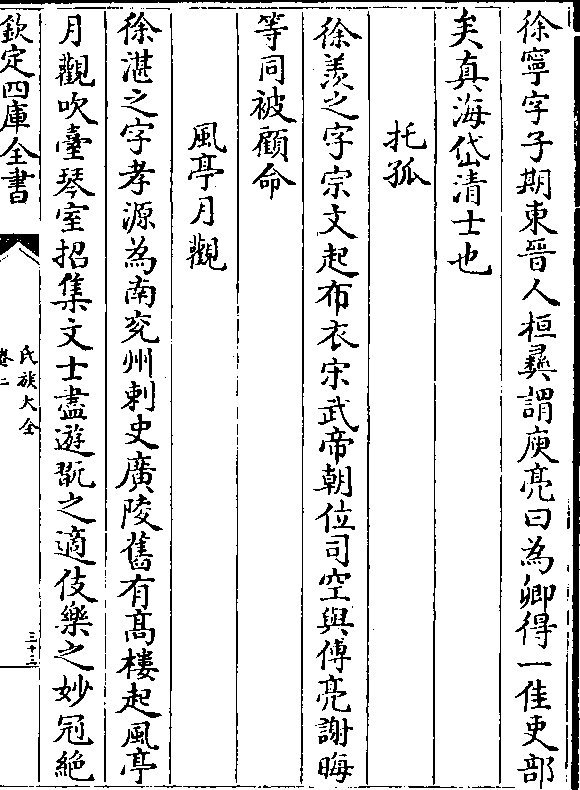 徐寧字子期東晉人桓彛謂庾亮曰為卿得一佳吏部
矣真海岱清士也
托孤
徐羨之字宗文起布衣宋武帝朝位司空與傅亮謝晦
等同被顧命
風亭月觀
徐湛之字孝源為南兖州刺史廣陵舊有髙樓起風亭
月觀吹臺琴室招集文士盡遊翫之適伎樂之妙冠絶
欽定四庫全書
氏族大全
卷二
三十三